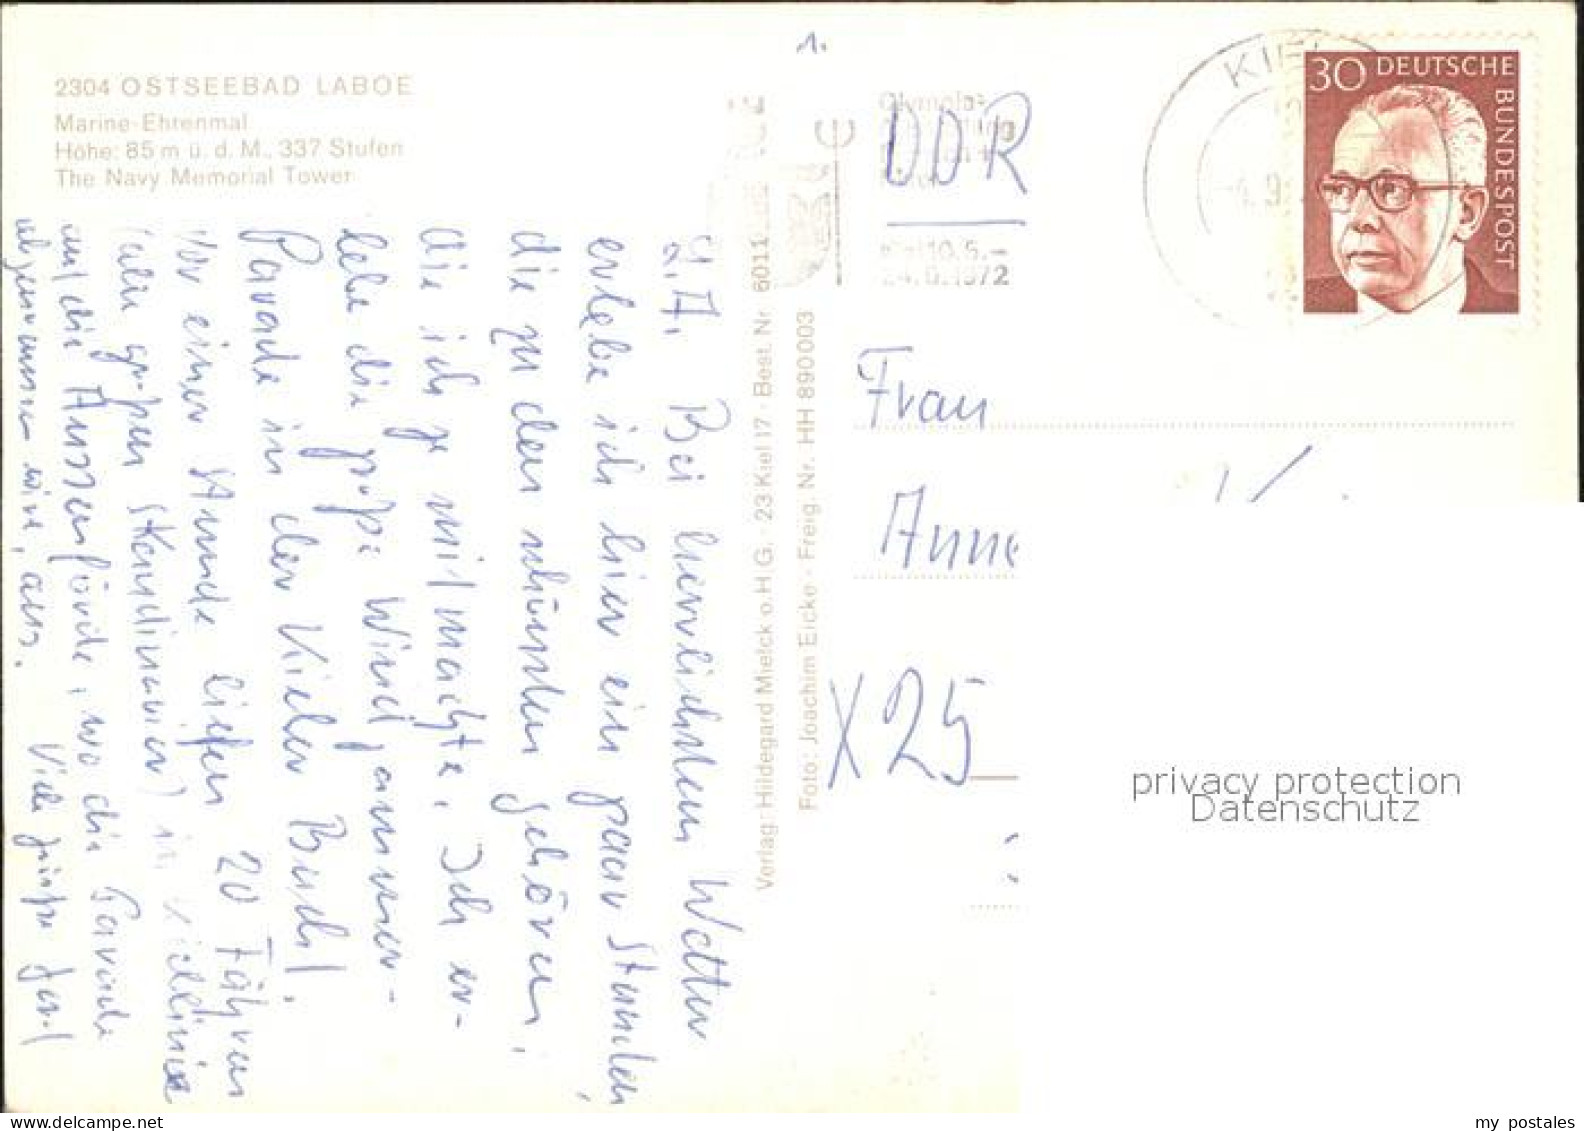 1.
2304 OSTSEEBAD LABOE
Marine-Ehrenmal
Höhe: 85 m ü. d. M., 337 Stufen
The Navy Memorial Tower
Bei herrlichstem Wetter
erlebe ich hier ein paar Stunden,
die zu den schönsten gehören,
die ich je mitmachte. Ich er-
lebe die große Windjammer-
Parade in der Kieler Bucht.
Vor einer Stunde liefen 20 Fähren
(alle großen Skandinavier) in
auf die Aussenförde, wo die Parade
abgenommen wird, aus. Viele Grüße
Verlag: Hildegard Mielck o.H.G. 23 Kiel 17 · Best. Nr. 6011
Foto: Joachim Eicke · Freig. Nr. HH 890003
DDR
1972
KIEL
30 DEUTSCHE
BUNDESPOST
Frau
Anne
X 25
privacy protection
Datenschutz
my postales